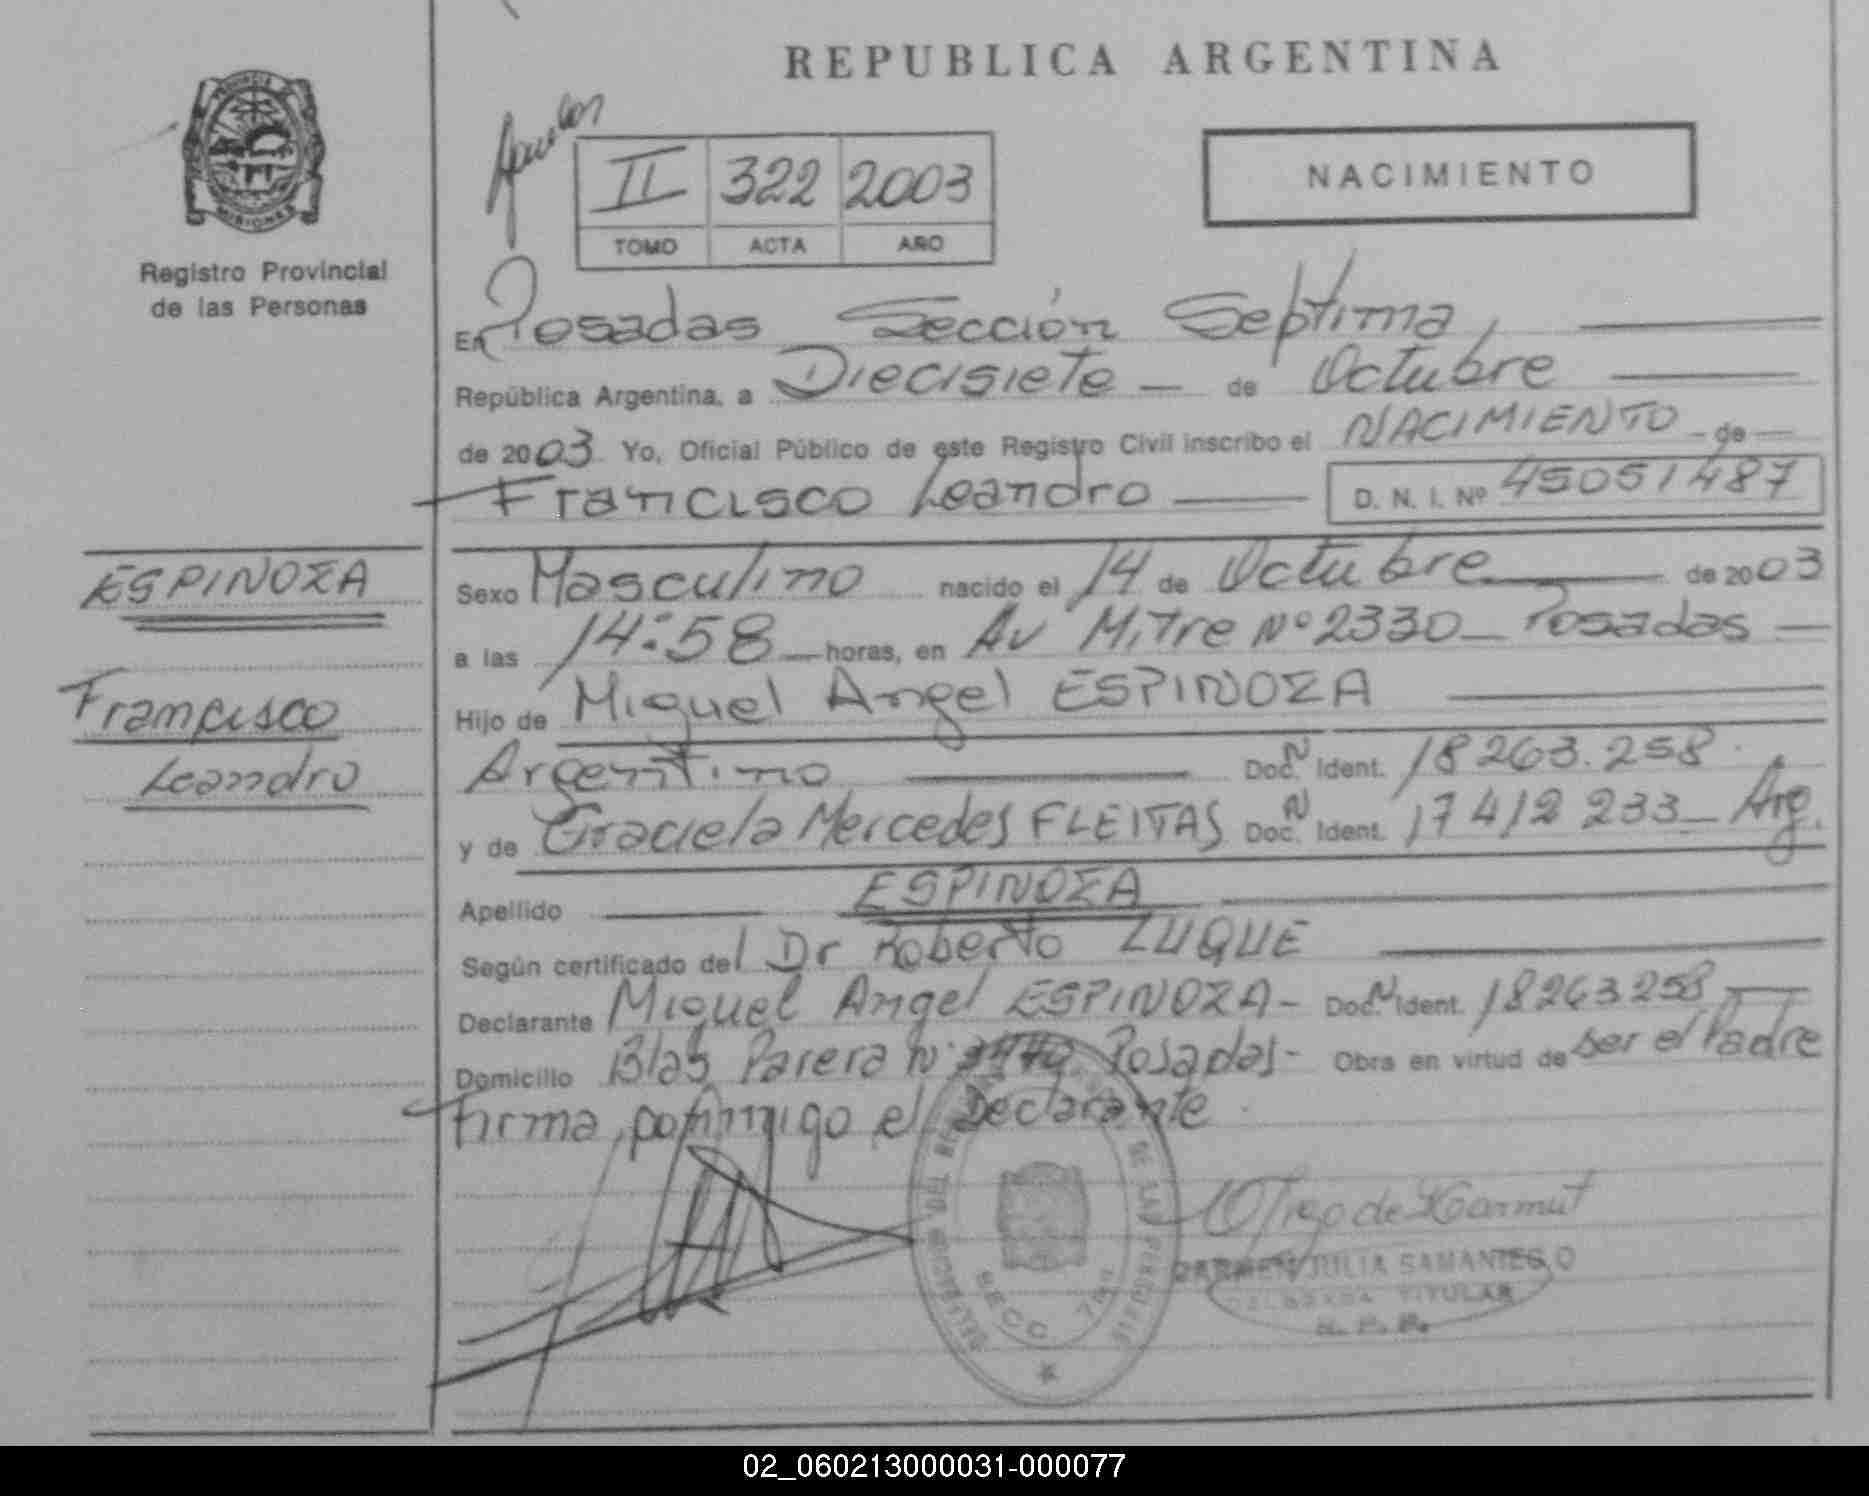 REPUBLICA ARGENTINA
PROVINCIA
MISIONES
Registro Provincial
de las Personas
II 322 2003
TOMO ACTA AÑO
NACIMIENTO
En Posadas Sección Septima,
República Argentina, a Diecisiete de Octubre
de 2003 Yo, Oficial Público de este Registro Civil inscribo el NACIMIENTO de
Francisco Leandro D. N. I. Nº 45051487
ESPINOZA
Francisco
Leandro
Sexo Masculino nacido el 14 de Octubre de 2003
a las 14:58 horas, en Av Mitre Nº 2330 Posadas
Hijo de Miguel Angel ESPINOZA
Argentino Doc. N Ident. 18263.258
y de Graciela Mercedes FLEITAS Doc. N Ident. 17412233 Arg.
Apellido ESPINOZA
Según certificado del Dr Roberto LUQUE
Declarante Miguel Angel ESPINOZA - Doc. N Ident. 18263258
Domicilio Blas Parera Nº Posadas - Obra en virtud de ser el Padre
firma conmigo el Declarante
SECC 7MA
CARMEN JULIA SAMANIEGO
TITULAR
R. P. P.
02_060213000031-000077